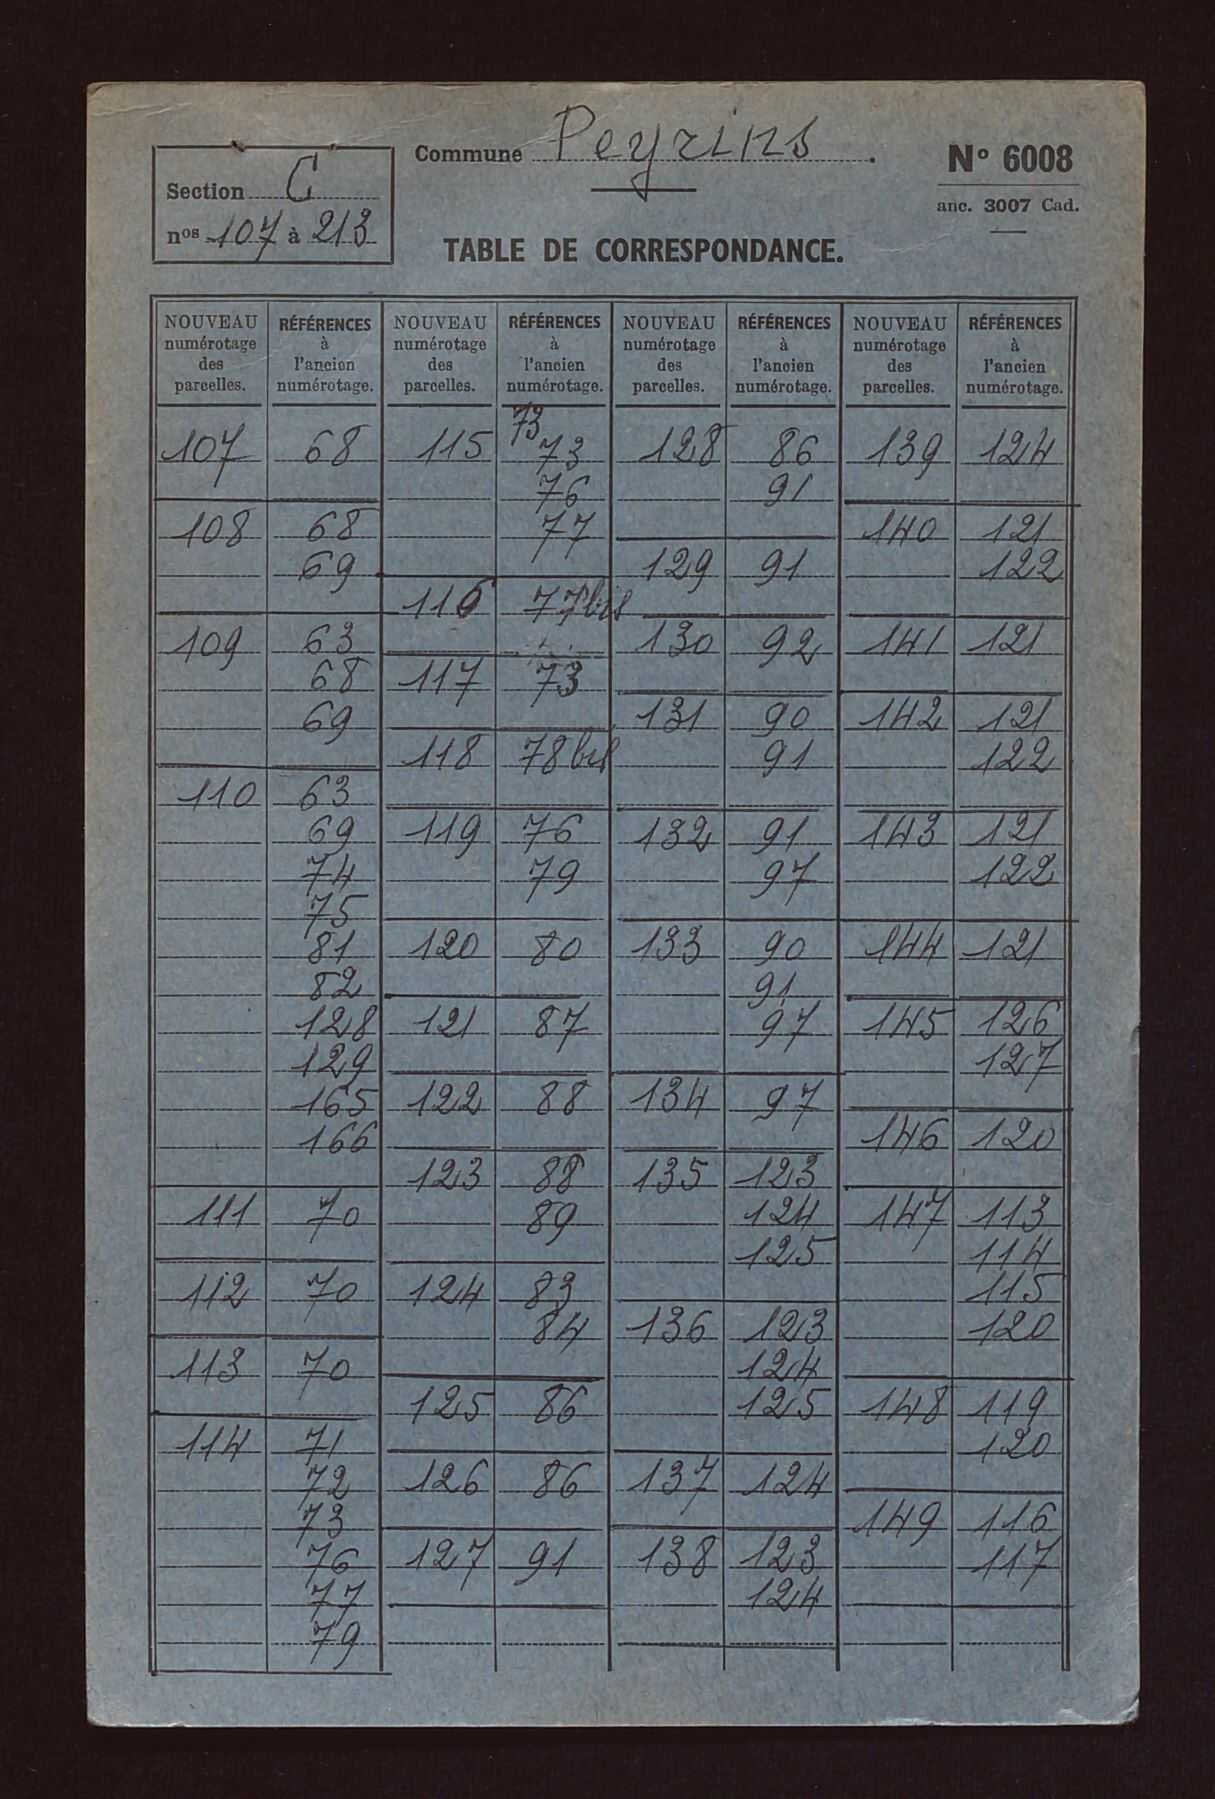 Commune Peyrins.
Section C
nos 107 à 213
N° 6008
anc. 3007 Cad.
TABLE DE CORRESPONDANCE.
NOUVEAU numérotage des parcelles. RÉFÉRENCES à l'ancien numérotage.
107 68
108 68
69
109 63
68
69
110 63
69
74
75
81
82
128
129
165
166
111 70
112 70
113 70
114 71
72
73
76
77
79
NOUVEAU numérotage des parcelles. RÉFÉRENCES à l'ancien numérotage.
73
115 73
76
77
116 77bis
117 73
118 78bis
119 76
79
120 80
121 87
122 88
123 88
89
124 83
84
125 86
126 86
127 91
NOUVEAU numérotage des parcelles. RÉFÉRENCES à l'ancien numérotage.
128 86
91
129 91
130 92
131 90
91
132 91
97
133 90
91
97
134 97
135 123
124
125
136 123
124
125
137 124
138 123
124
NOUVEAU numérotage des parcelles. RÉFÉRENCES à l'ancien numérotage.
139 124
140 121
122
141 121
142 121
122
143 121
122
144 121
145 126
127
146 120
147 113
114
115
120
148 119
120
149 116
117